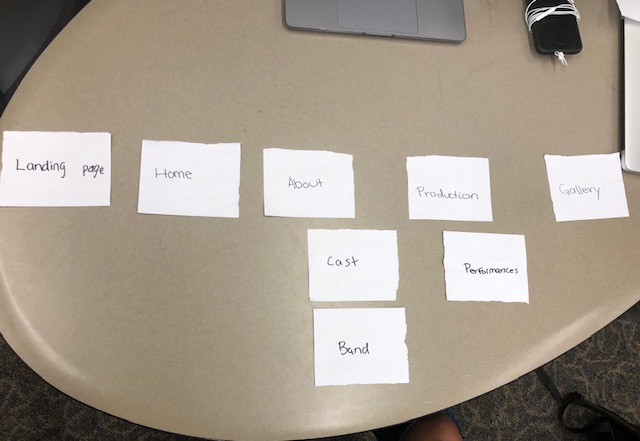 Landing page
Home
About
Production
Gallery
Cast
Performances
Band